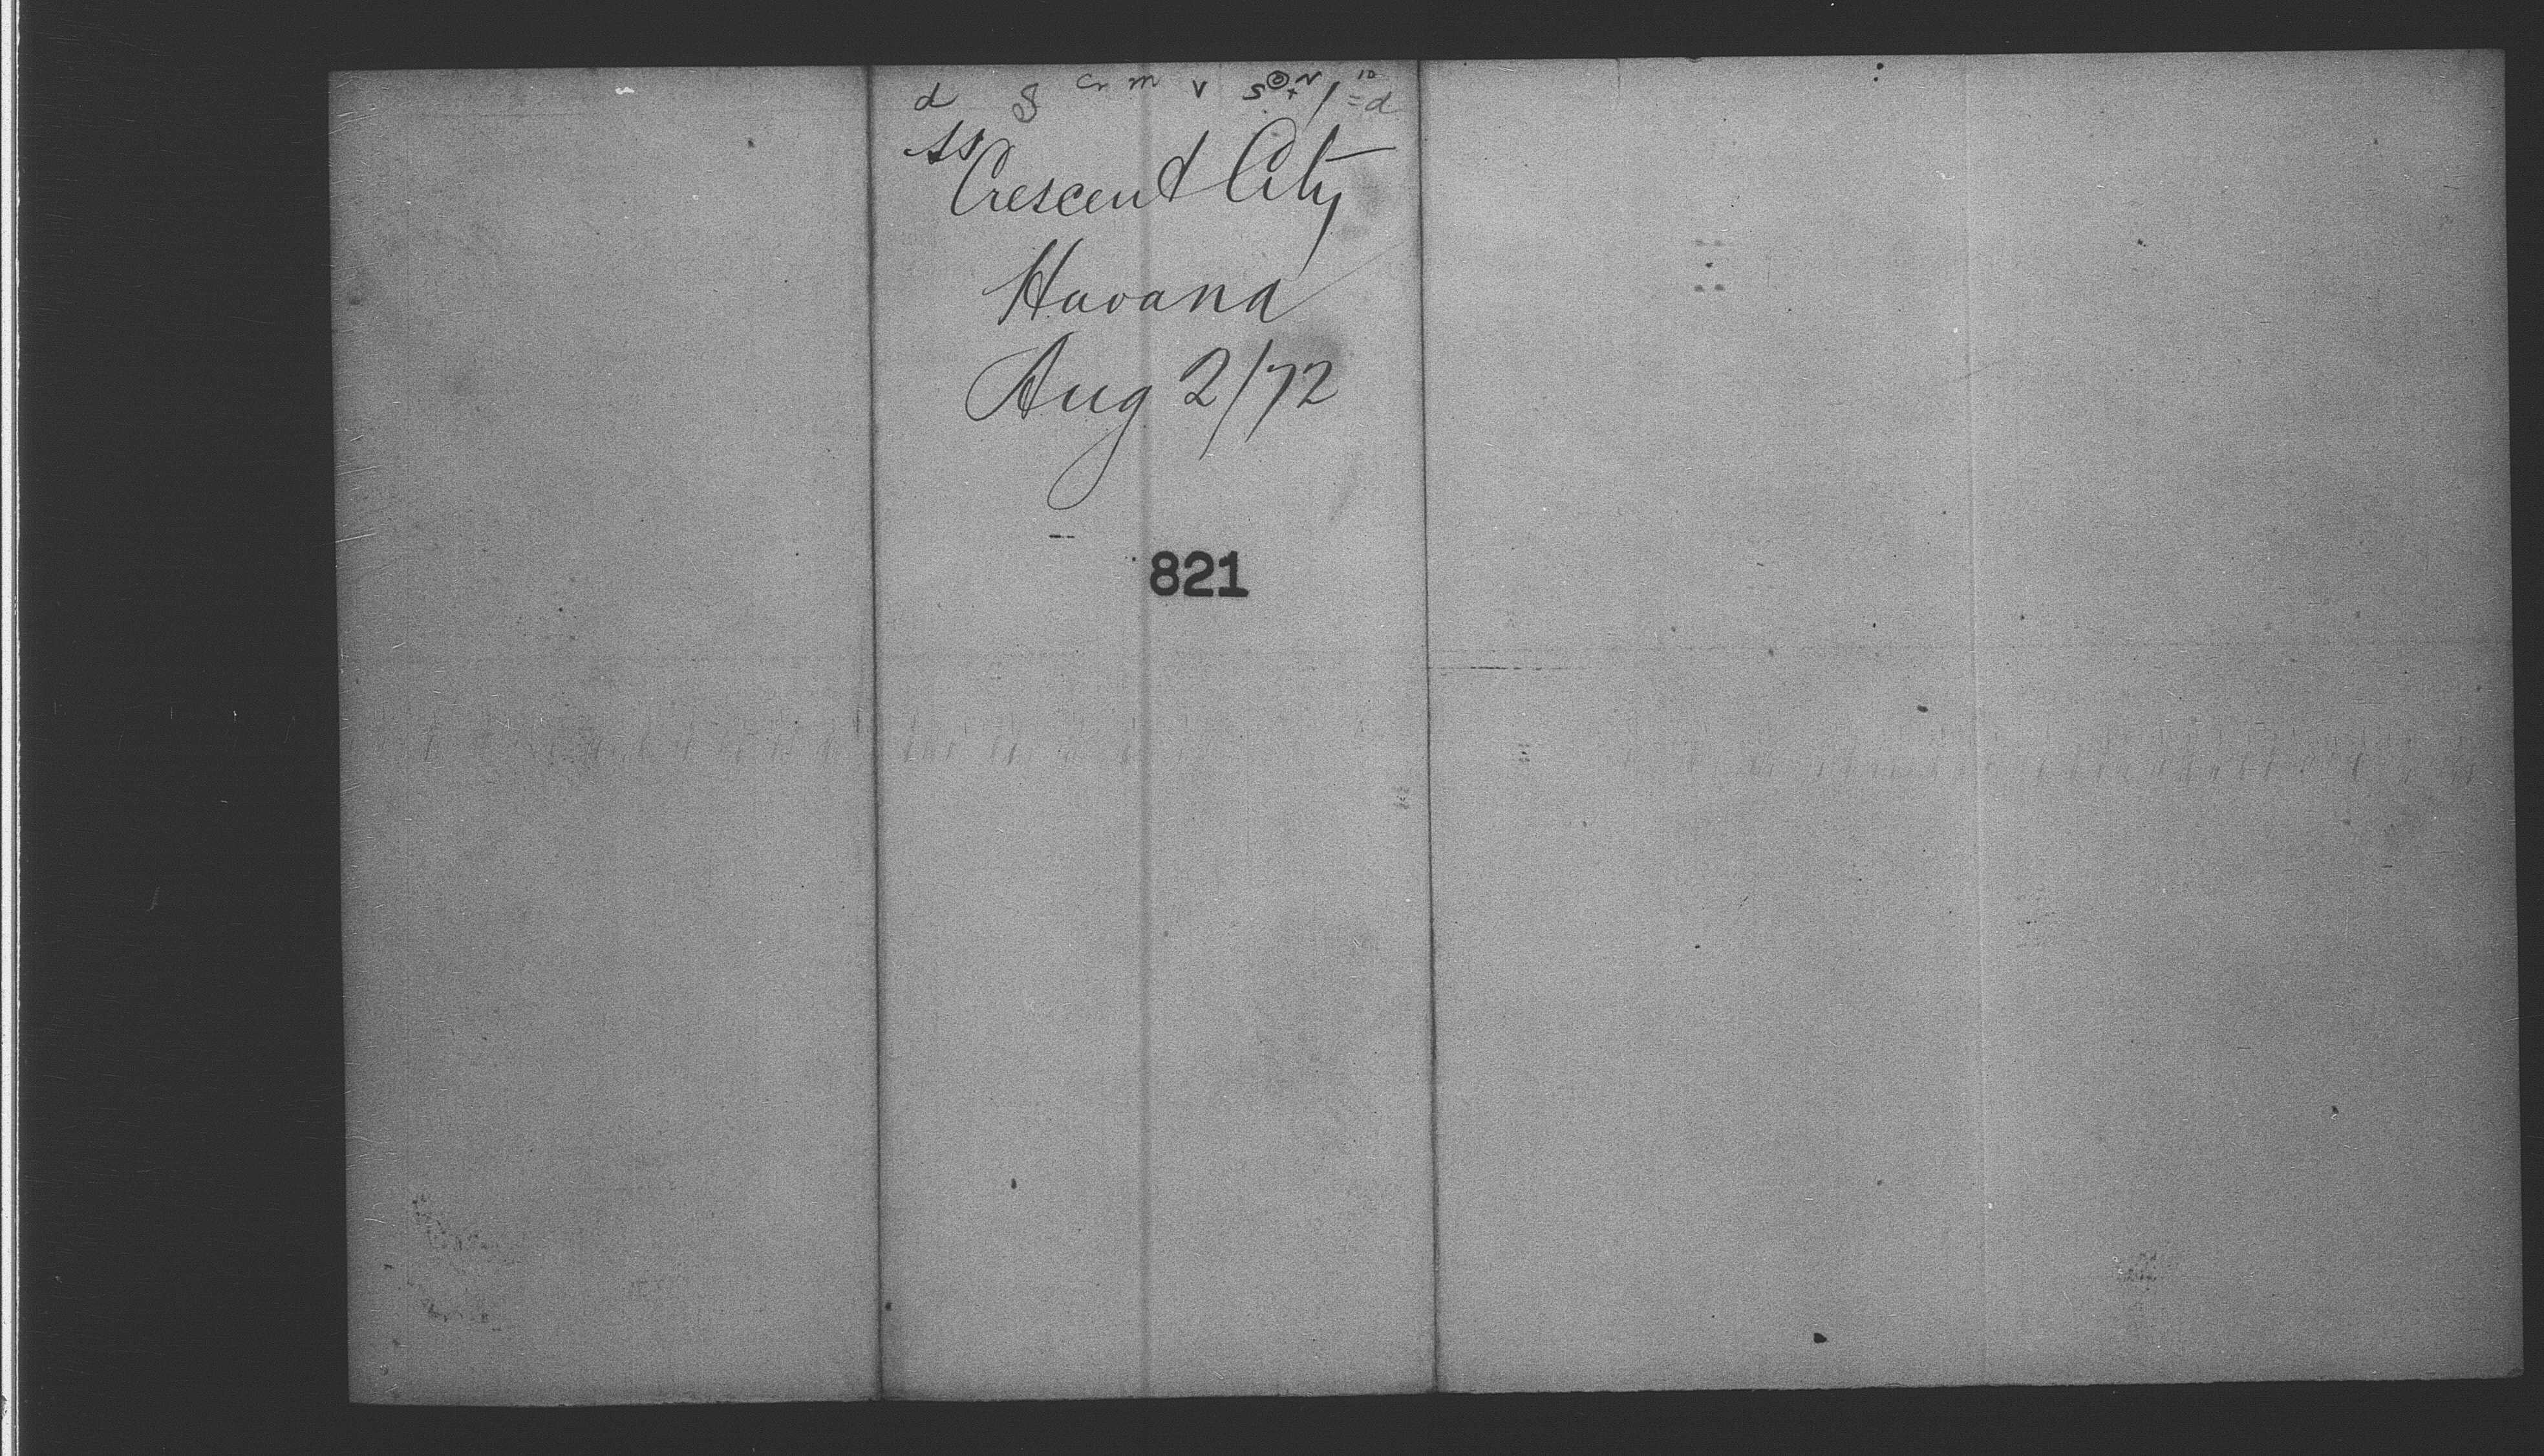 SS
Crescent City
Havana
Aug 2/72
821